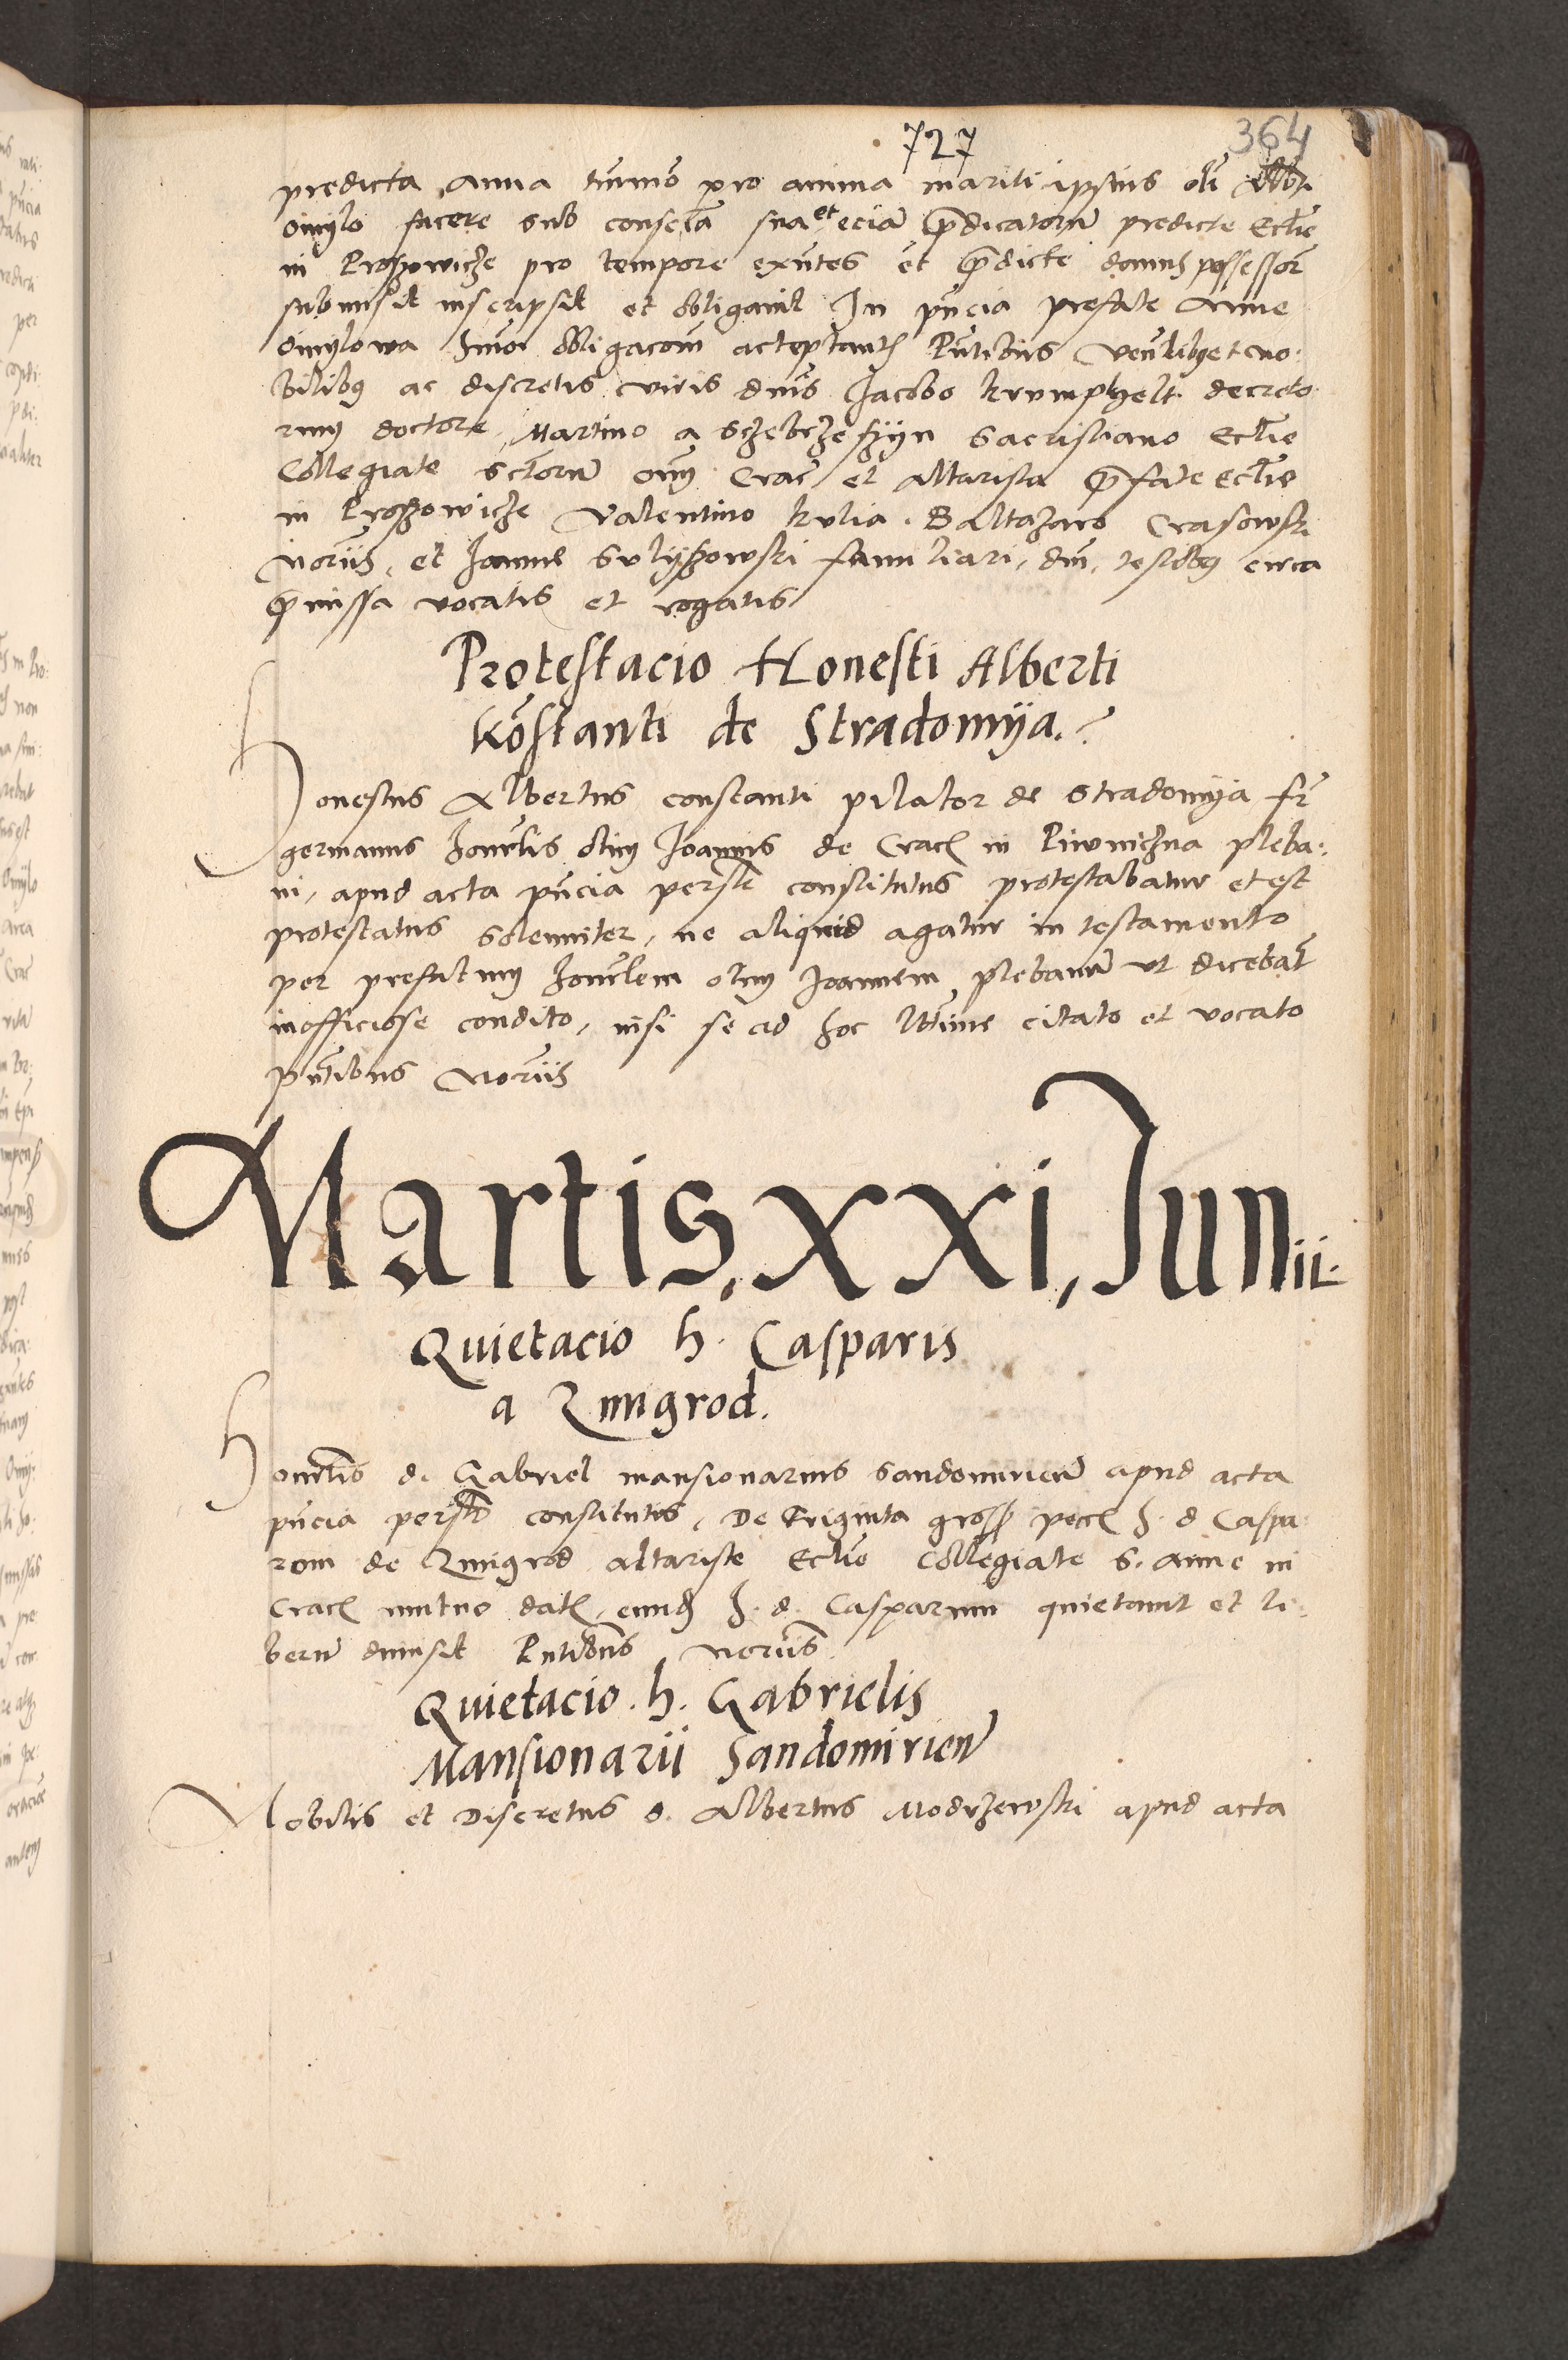 727
364
predicta Anna tummo pro anima mariti ipsius oli Alb
Omylo facere sub consciā sua et eciā p̄dicatorū predicte Eccl̄ie
in Proszowicze pro tempore exn̄tes et p̄dicte domus possessor̄
submisit inscripsit et obligavit In pn̄cia prefate Anne
Omylowa hm̄oi obligacōm acceptantis Pn̄tibus Ven̄libus et no:
bilibus ac discretis viris dn̄is Jacobo krumphelt decreto
rum doctore, Martino a Sczebrzeszyn Sacristiano Eccl̄ie
Collegiate Sctōrū Om̄ Crac̄ et altarista p̄fate eccl̄ie
in Proszowicze Valentino kulia. Baltazaro Crasowski
Notariis, et Joanne Sulyszowski familiari, dn̄i, testibus circa
p̄missa vocatis et rogatis
Protestacio Honesti Alberti
Kōstanti de Stradomija.
Honestus Albertus constanti pilator de Stradomija fr̄
germanus honor̄lis olim Joannis de Crac̄ in Piwniczna pleba:
ni, apud acta pn̄cia persl̄r constitutus protestabatur et est
protestatus solenniter, ne aliquid agatur in testamento
per prefatum honor̄lem olim Joannem plebanū ut dicebat̄
inofficiose condito, nisi se ad hoc ltīme citato et vocato
pn̄tibus Notariis
Martis, xxi, Junii.
Quietacio h. Casparis
a Zmigrod.
Honor̄lis d. Gabriel mansionarius Sandomirien̄ apud acta
pn̄cia persl̄r constitutus, De Triginta gross̄ pec̄ h. d Caspa:
rem de Zmigrod altariste Eccl̄ie Collegiate S. Anne in
Crac̄ mutuo dat̄, eund̄ h. d. Casparum quietavit et li:
berū dimisit Pn̄tibus Notariis
Quietacio. h. Gabrielis
Mansionarii Sandomirien̄
Nobilis et Discretus d. Albertus Modrzewski apud acta